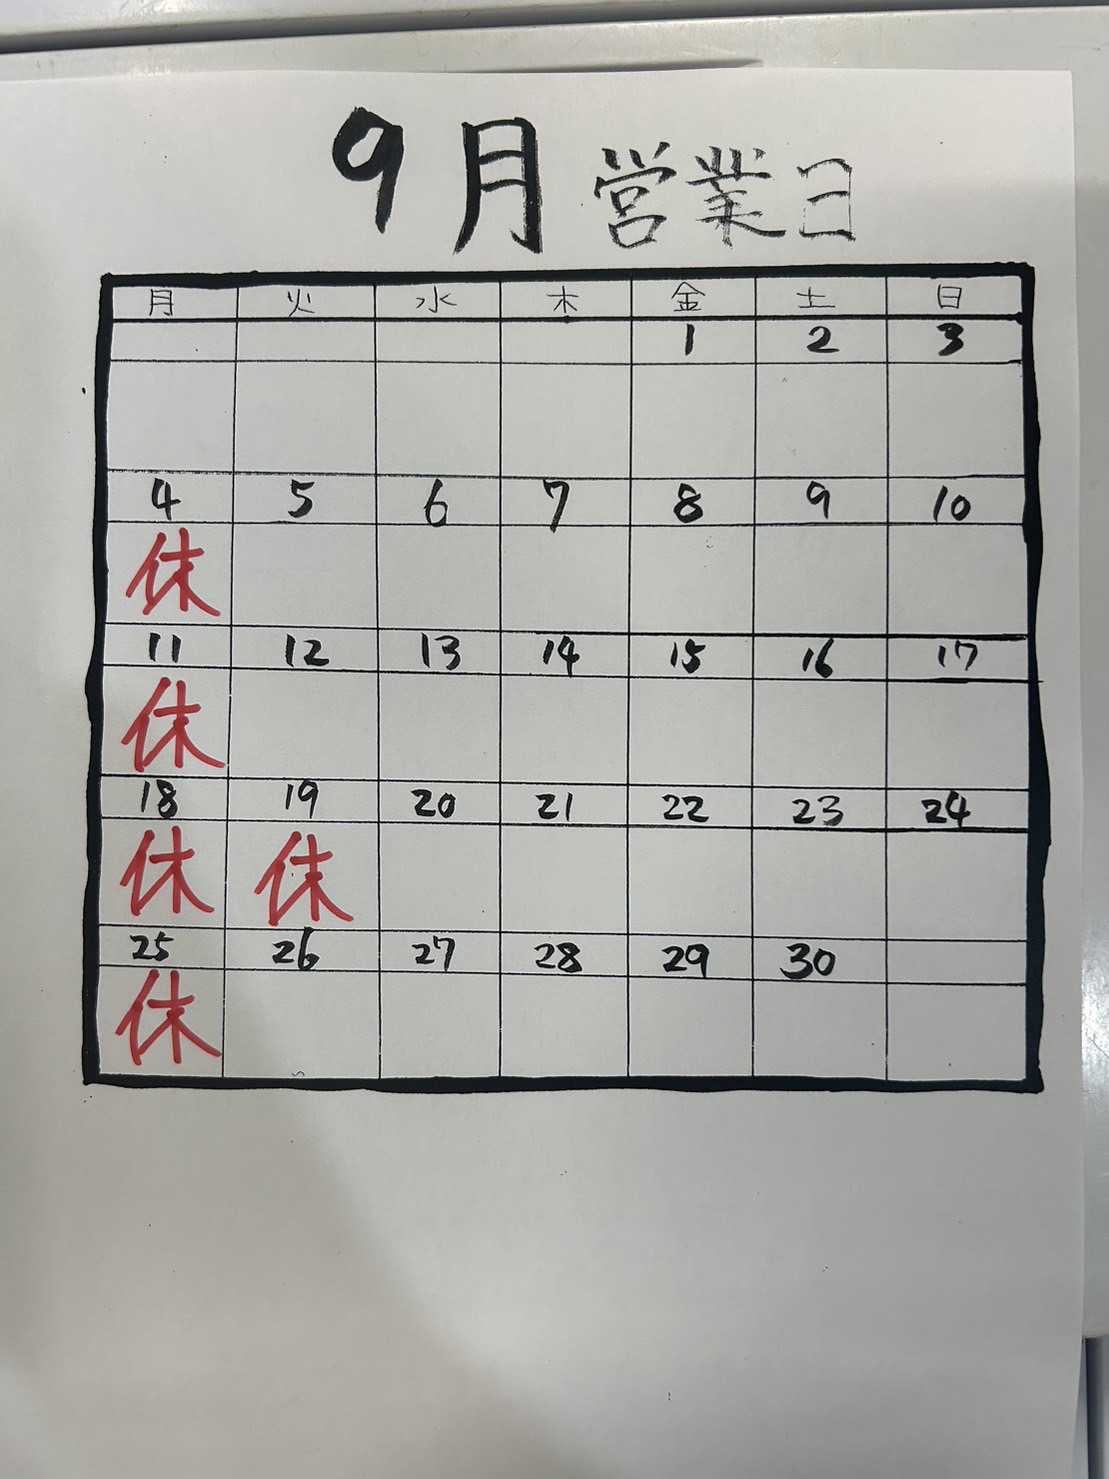 9月 営業日
月 火 水 木 金 土 日
1 2 3
4 5 6 7 8 9 10
休
11 12 13 14 15 16 17
休
18 19 20 21 22 23 24
休 休
25 26 27 28 29 30
休